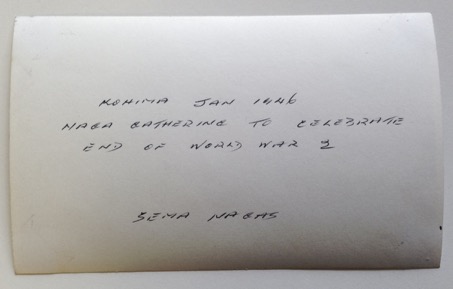 KOHIMA JAN 1946
NAGA GATHERING TO CELEBRATE
END OF WORLD WAR 2
SEMA NAGAS